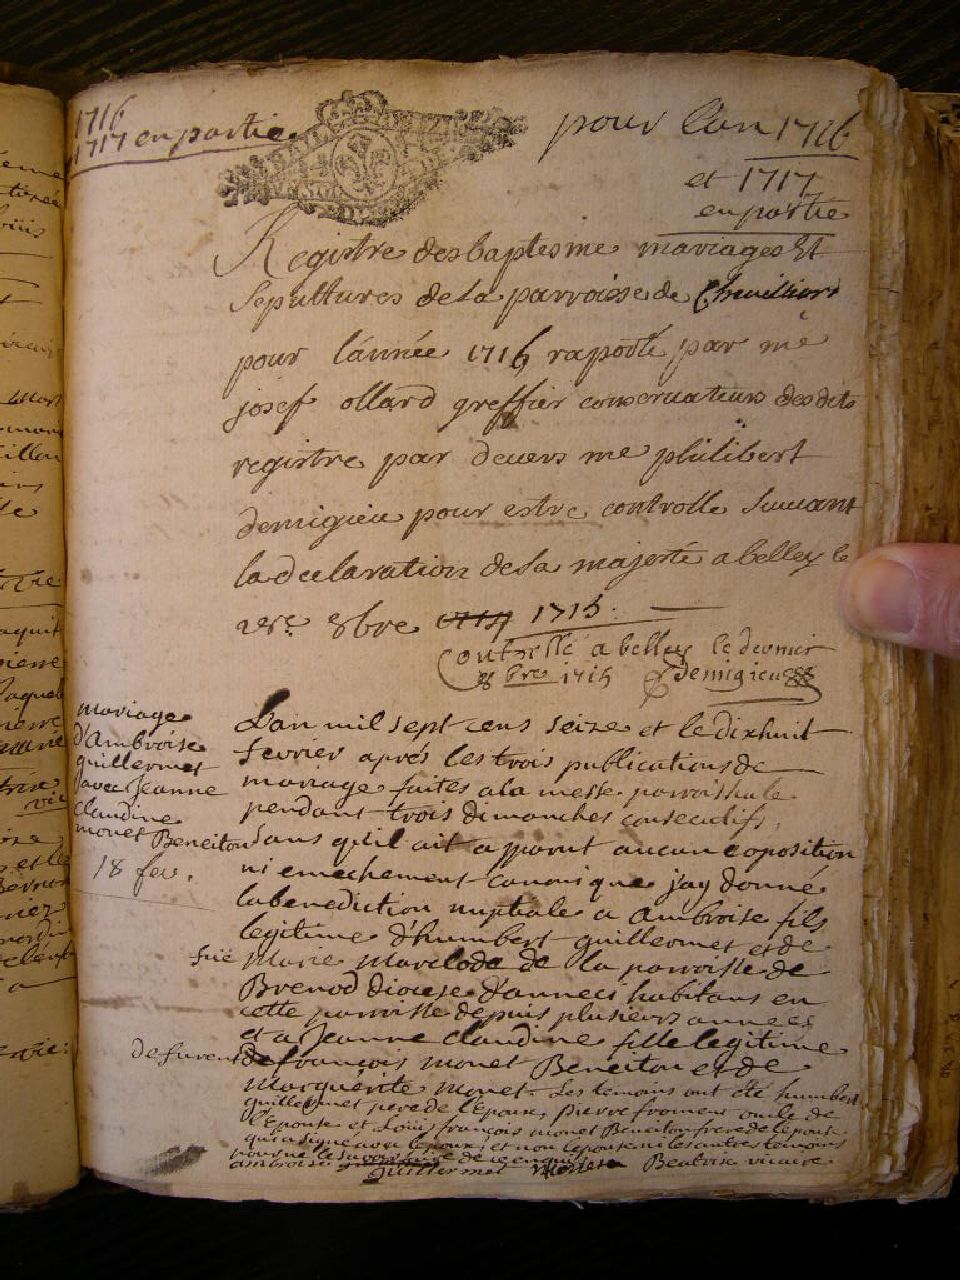 1716
1717 en partie
pour lan 1716
et 1717
en partie
Registre des baptesme mariages Et
Sepultures de la parroisse de Chevilliard
pour lánnée 1716 raporté par me
josef ollard greffier conservateurs desdits
registre par devers me philibert
demigieu pour estre controlle Suivant
la declaration de Sa majesté a belley le
8bre 1715
Controllé a belley le dernier
8bre 1715 Demigieu
mariage
d'Ambroise
guillermet
avec Jeanne
claudine
monet Beneiton
18 fev.
L'an mil sept cens seize et le dixhuit
fevrier aprés les trois publications de
mariage faites a la messe parroissiale
pendant trois dimanches consecutifs,
Sans qu'il ait apparut aucun oposition
ni emechement canonique j'ay donné
la benediction nuptiale a Ambroise fils
legitime d'humbert guillermet et de
Marie Marclode de la parroisse de
Brenod diocese d'anneci habitans en
cette parroisse depuis plusieurs années
et a Jeanne claudine fille legitime
de françois monet Beneiton et de
Marguerite Monet. Les temoins ont été humbert
guillermet pere de l'Epoux, pierre fromeur oncle de
l'Epouse et Loüis françois monet Beneiton frere de l'epouse
qui a signé avec l'epoux, et non l'epouse ni les autres temoins
pour ne le savoir faire de ce enquis
ambroise guillermet monet Beatrix vicaire